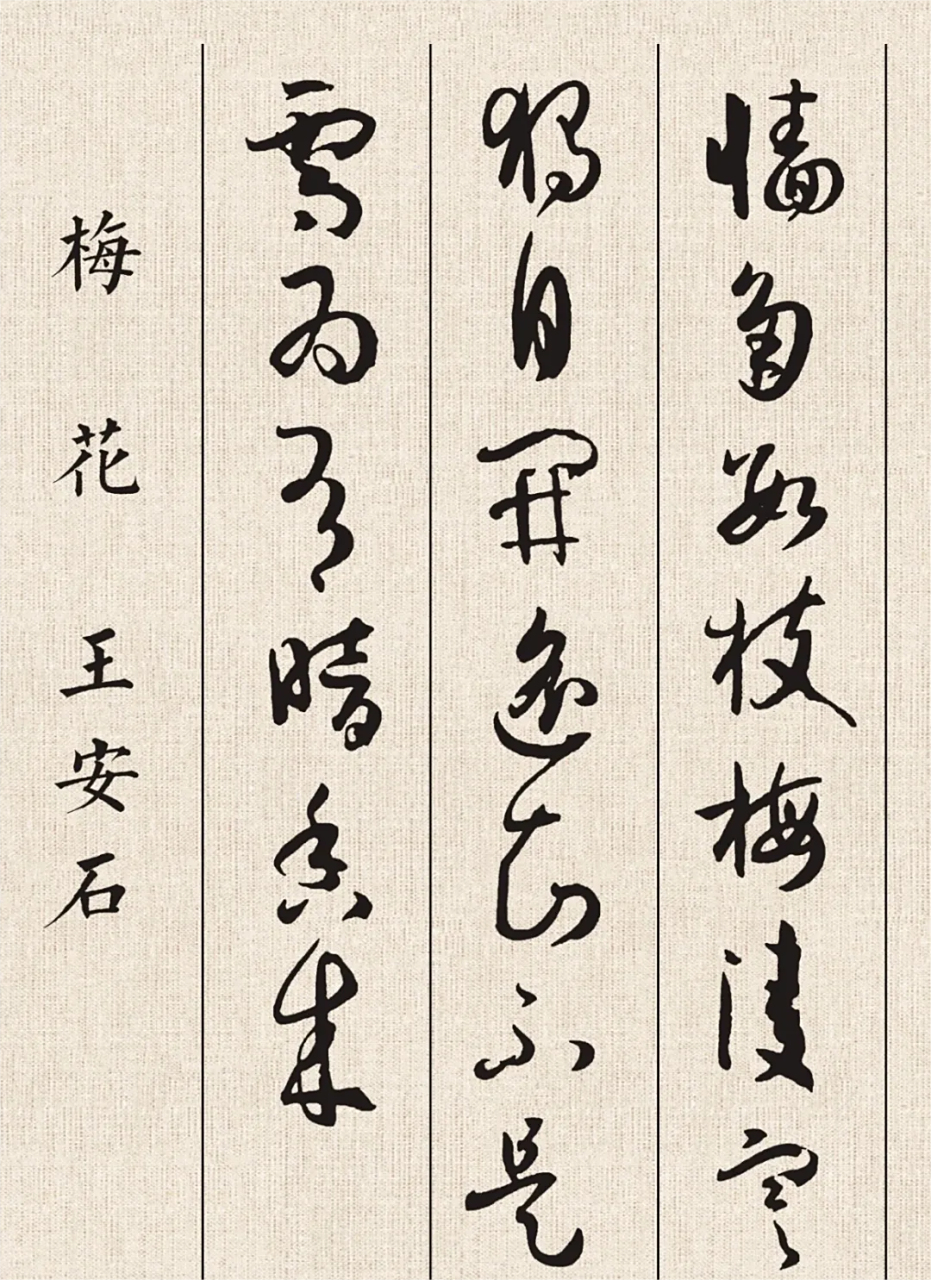 墙角数枝梅凌寒
独自开遥知不是
雪为有暗香来
梅花 王安石